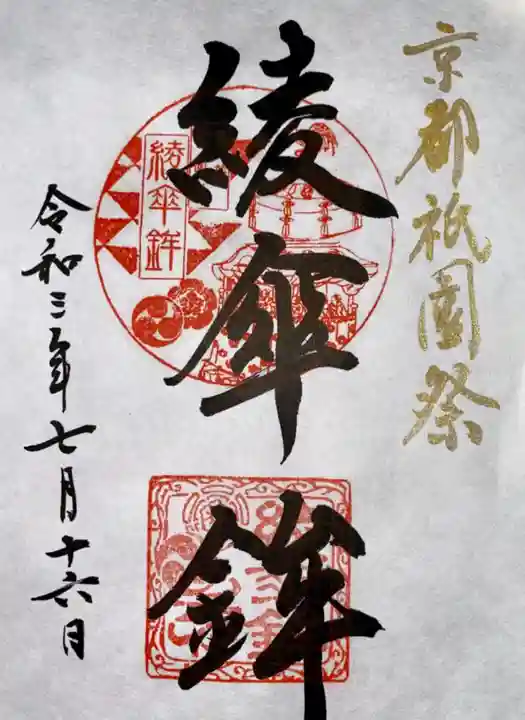 京都祇園祭
綾傘鉾
綾傘鉾
令和三年七月十六日